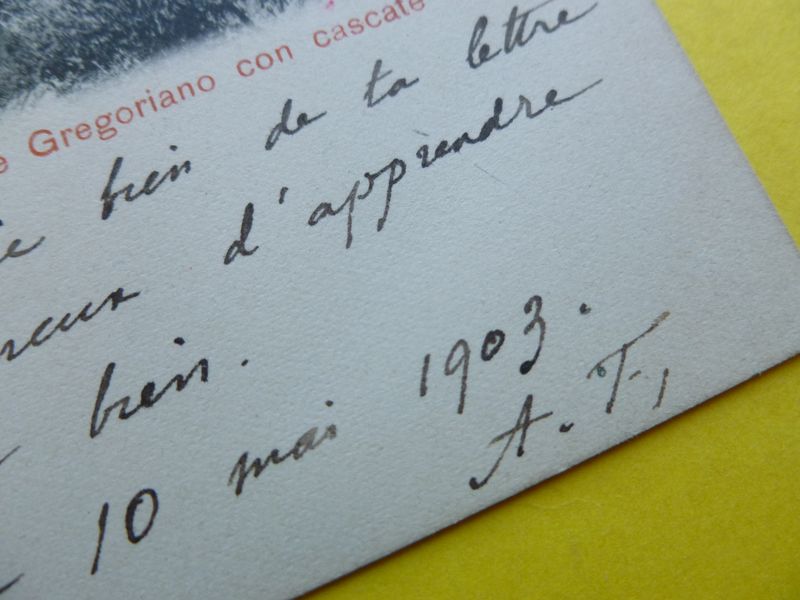 Gregoriano con cascate
bien de ta lettre
d'apprendre
bien.
10 mai 1903.
A. F.